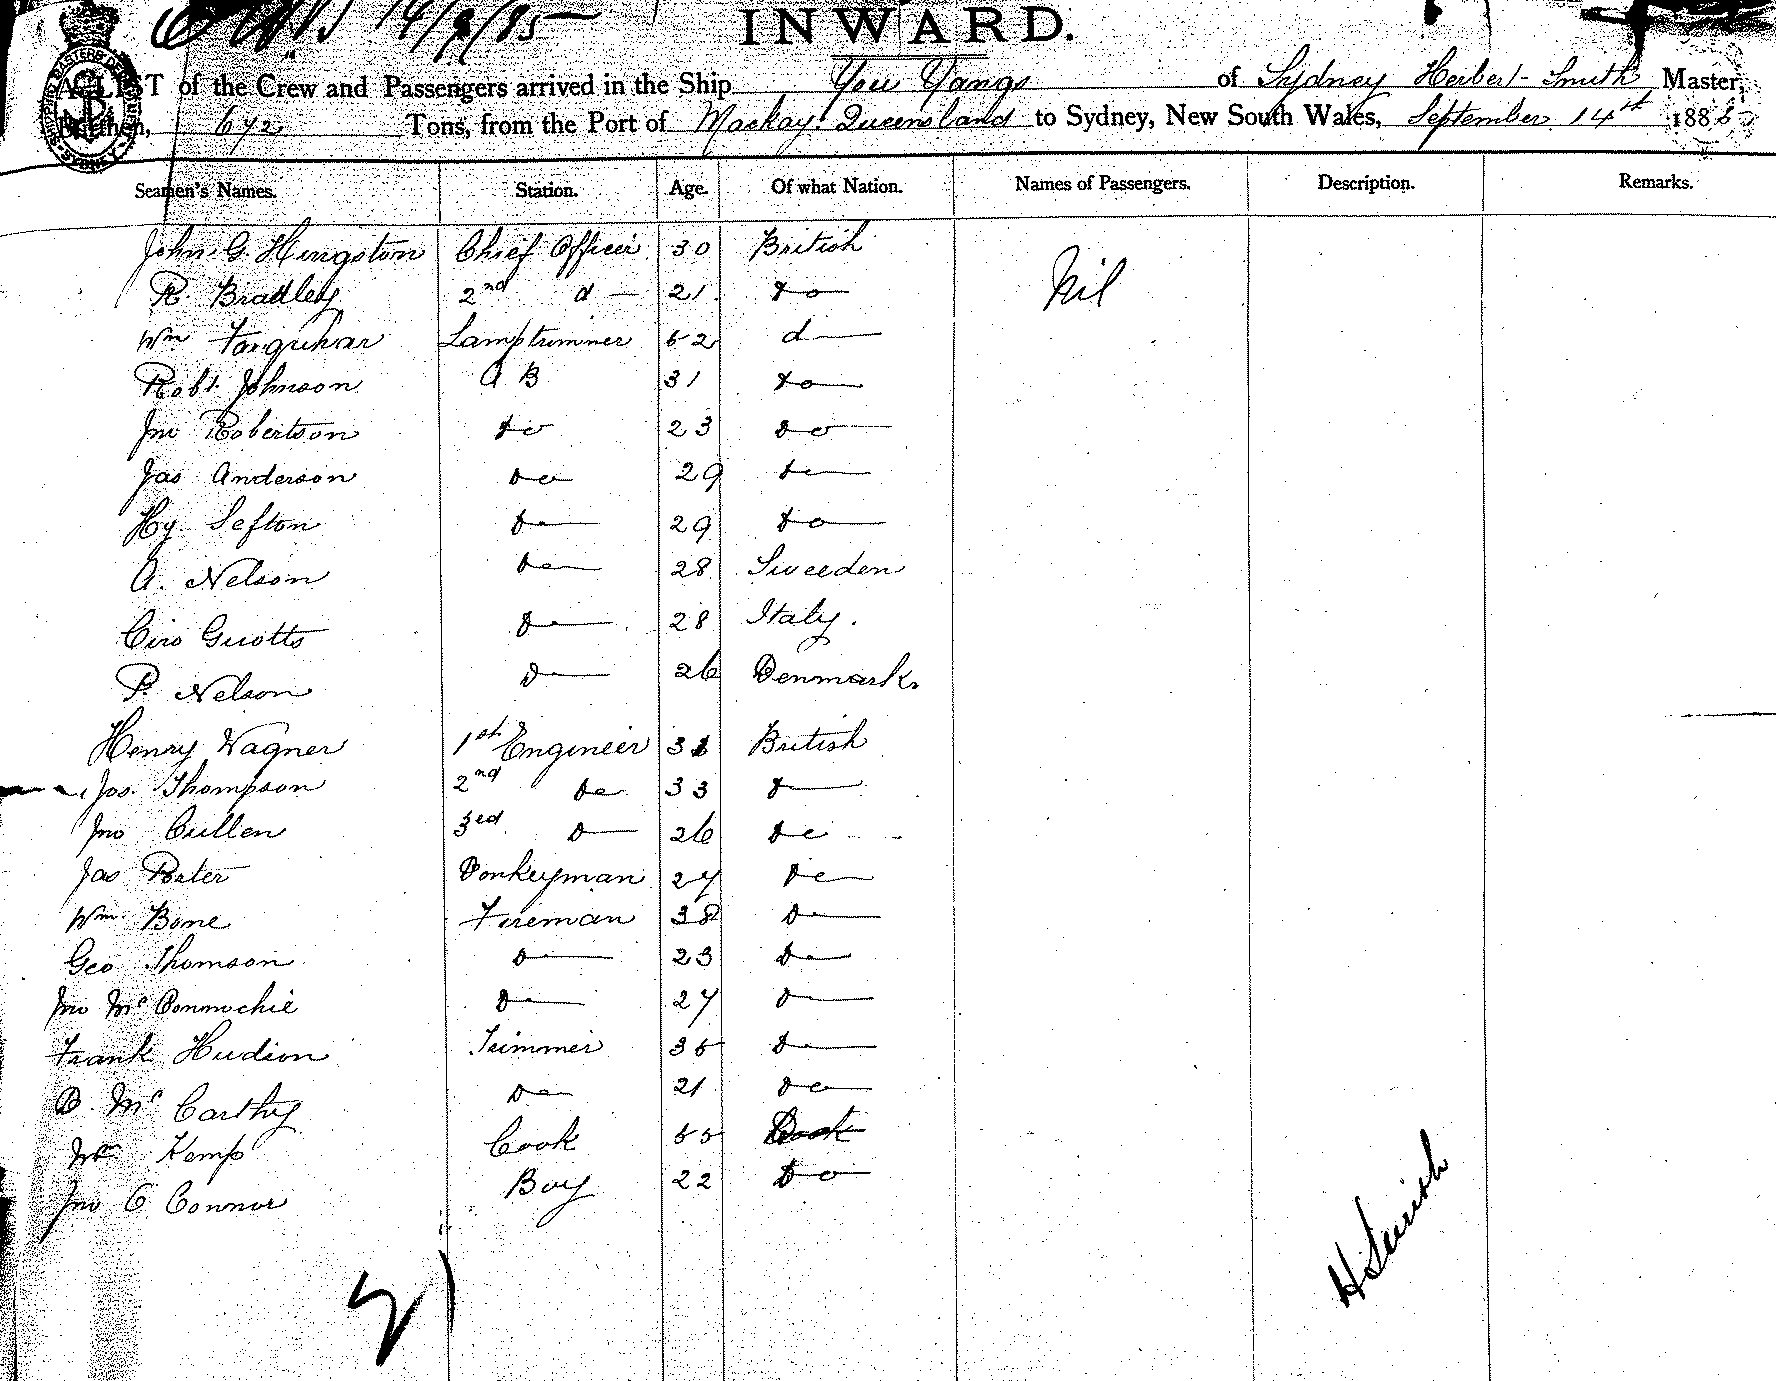 14/9/85
INWARD.
A LIST of the Crew and Passengers arrived in the Ship You Yangs of Sydney Herbert Smith Master,
Burthen, 672 Tons, from the Port of Mackay. Queensland to Sydney, New South Wales, September 14th 1885
Seamen's Names. Station. Age. Of what Nation. Names of Passengers. Description. Remarks.
John G. Hingston Chief Officer 30 British
R. Bradley 2nd d 21 do Nil
Wm Farquhar Lamptrimmer 52 d
Robt. Johnson A B 31 do
Jno Robertson do 23 do
Jas Anderson do 29 do
Hy Sefton do 29 do
A. Nelson do 28 Sweeden
Ciro Guotto Do 28 Italy.
P. Nelson Do 26 Denmark.
Henry Wagner 1st Engineer British
Jos. Thompson 2nd do 33 do
Jno Cullen 3rd Do 26 do
Jas Porter Donkeyman 27 Do
Wm Bone Fireman 38 Do
Geo Thomson Do 23 Do
Jno Mc Connochie Do 27 Do
Frank Hudson Trimmer 35 Do
D. Mc Carthy Do 21 Do
Kemp Cook 55
Jno O Connor Boy 22 Do
H Smith
21